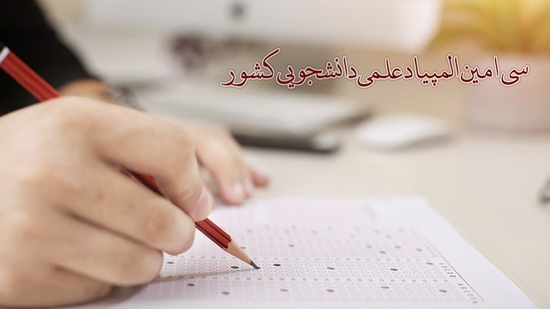 سی امین المپیاد علمی دانشجویی کشور